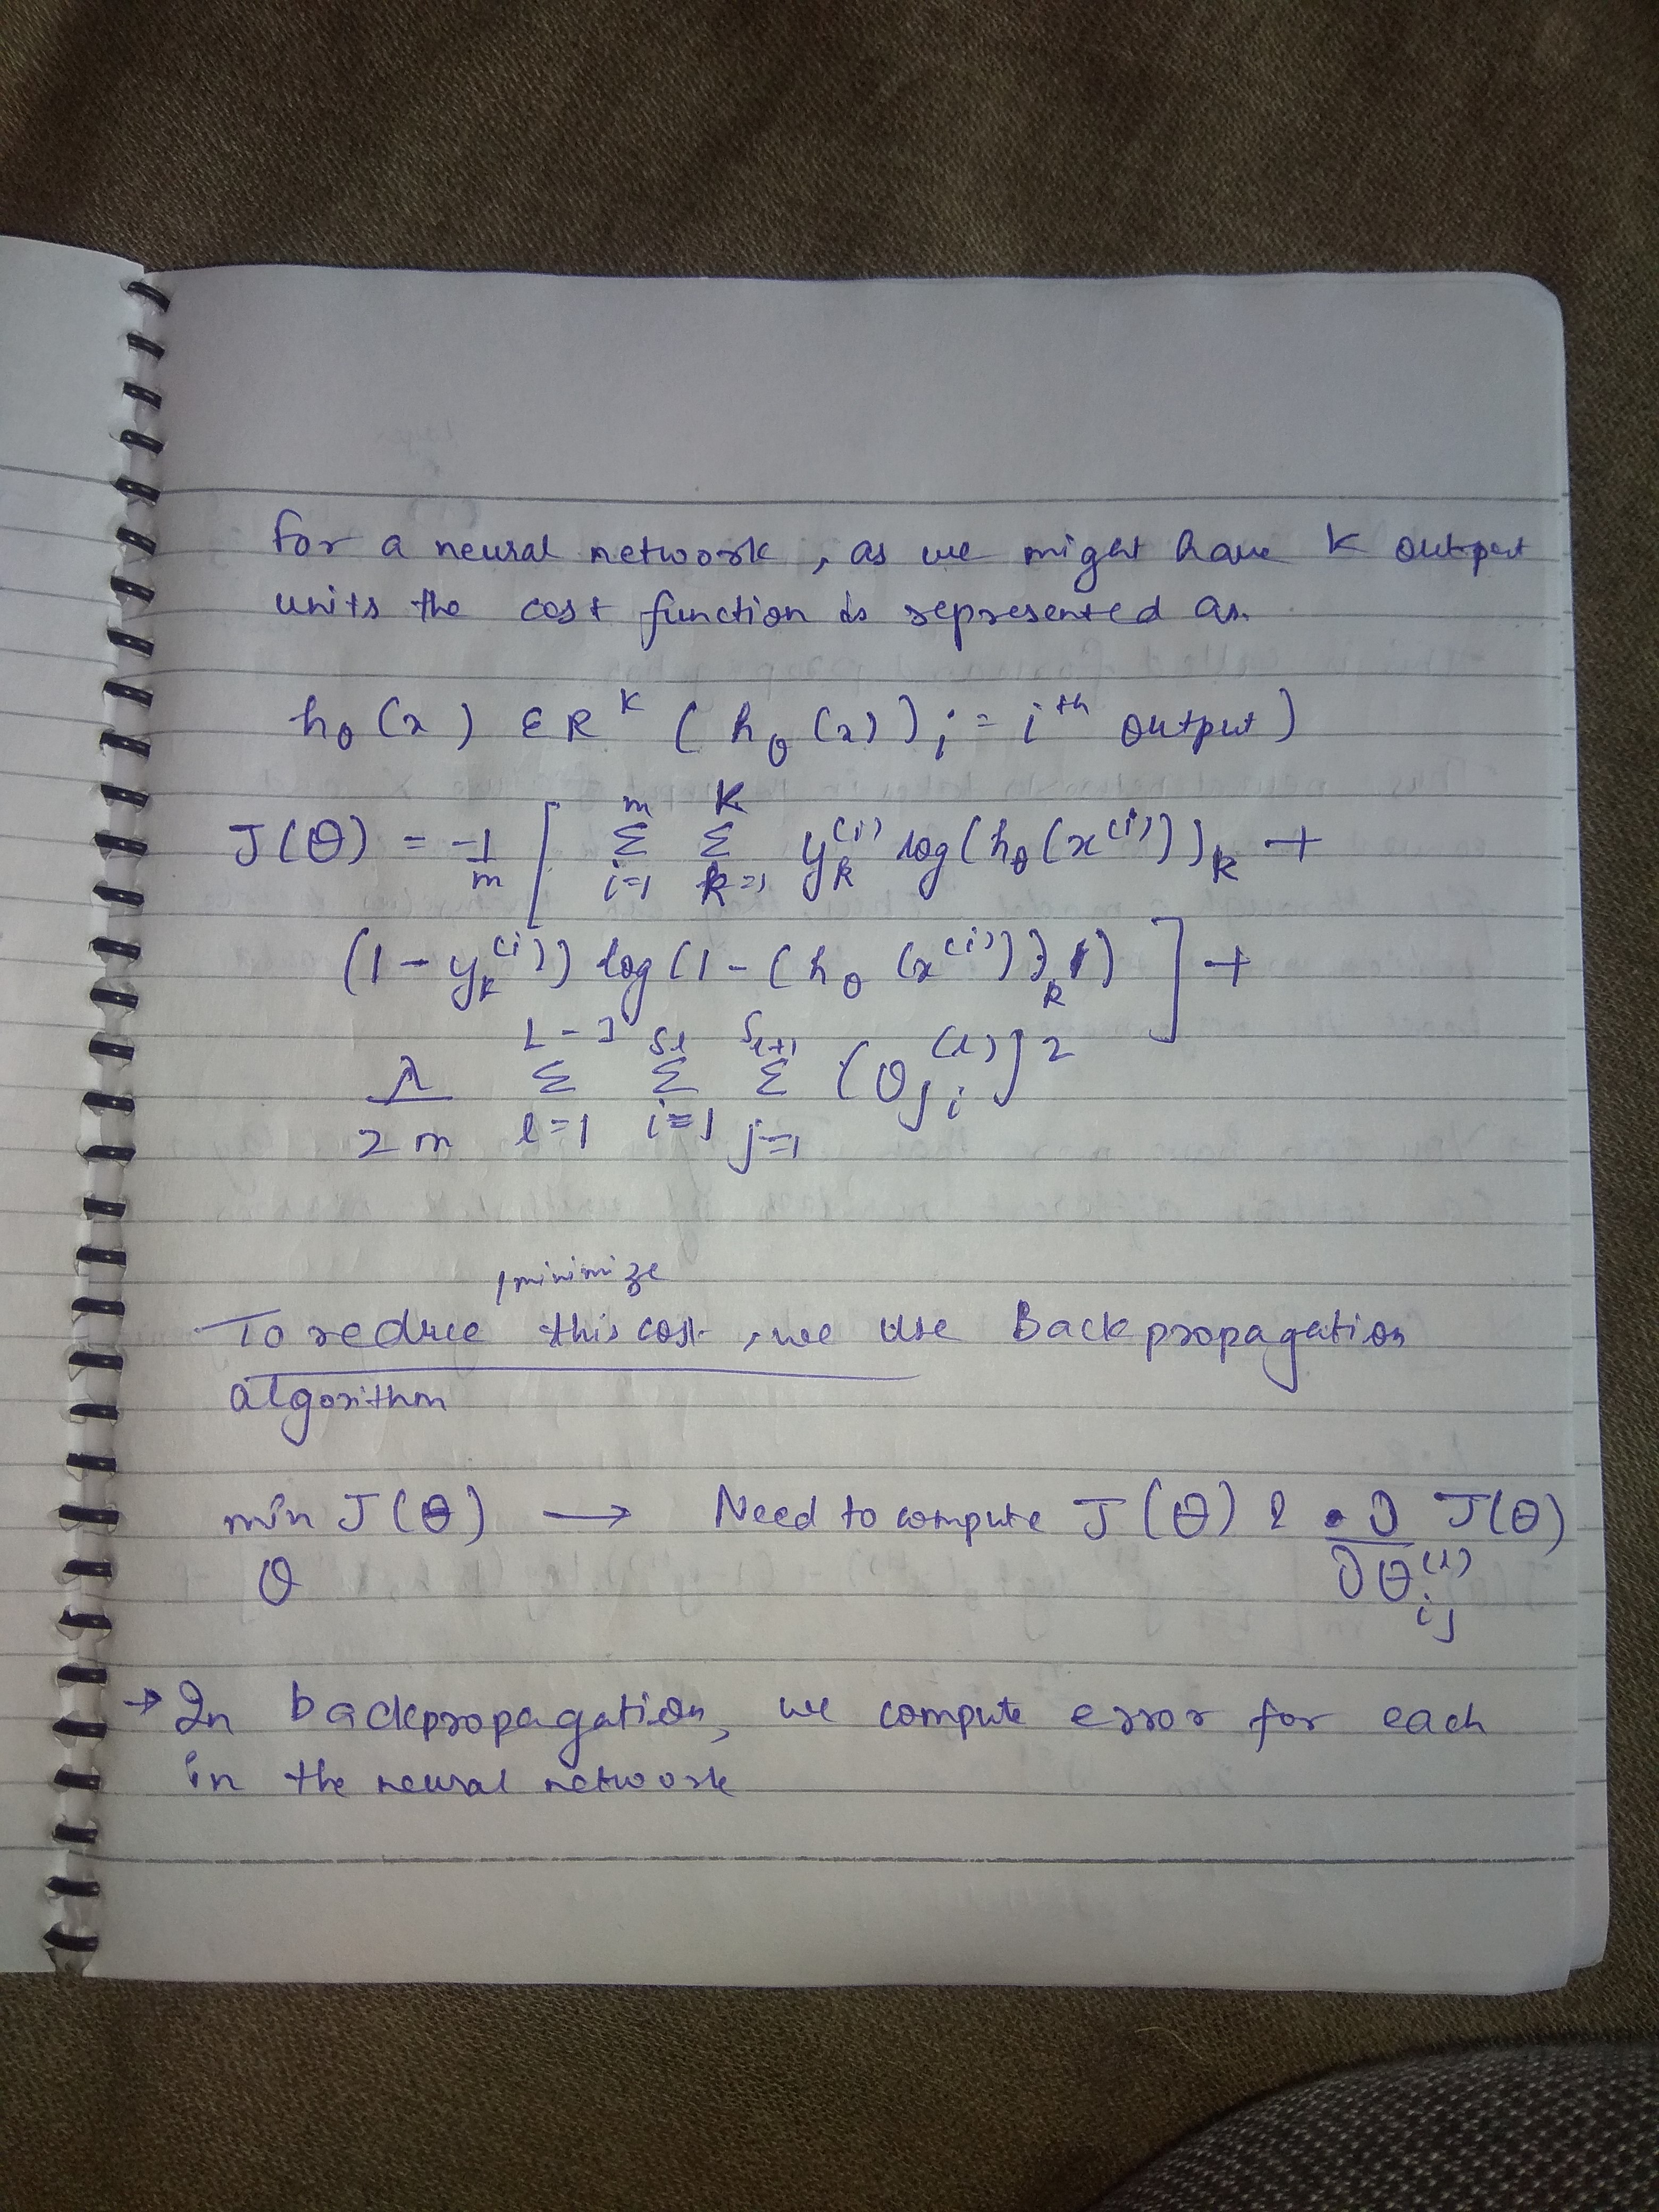 for a neural network, as we might have K output
units the cost function is represented as.
hθ(x) ∈ R^K (hθ(x))i = i^th output)
J(θ) = -1/m [ Σ_{i=1}^{m} Σ_{k=1}^{K} y_k^(i) log(hθ(x^(i)))_k +
(1 - y_k^(i)) log(1 - (hθ(x^(i)))_k) ] +
λ/2m Σ_{l=1}^{L-1} Σ_{i=1}^{S_l} Σ_{j=1}^{S_{l+1}} (θ_{ji}^(l))^2
/minimize
To reduce this cost, we use Backpropagation
algorithm
min J(θ) → Need to compute J(θ) & ∂/∂θ_{ij}^(l) J(θ)
θ
→ In backpropagation, we compute error for each
in the neural network